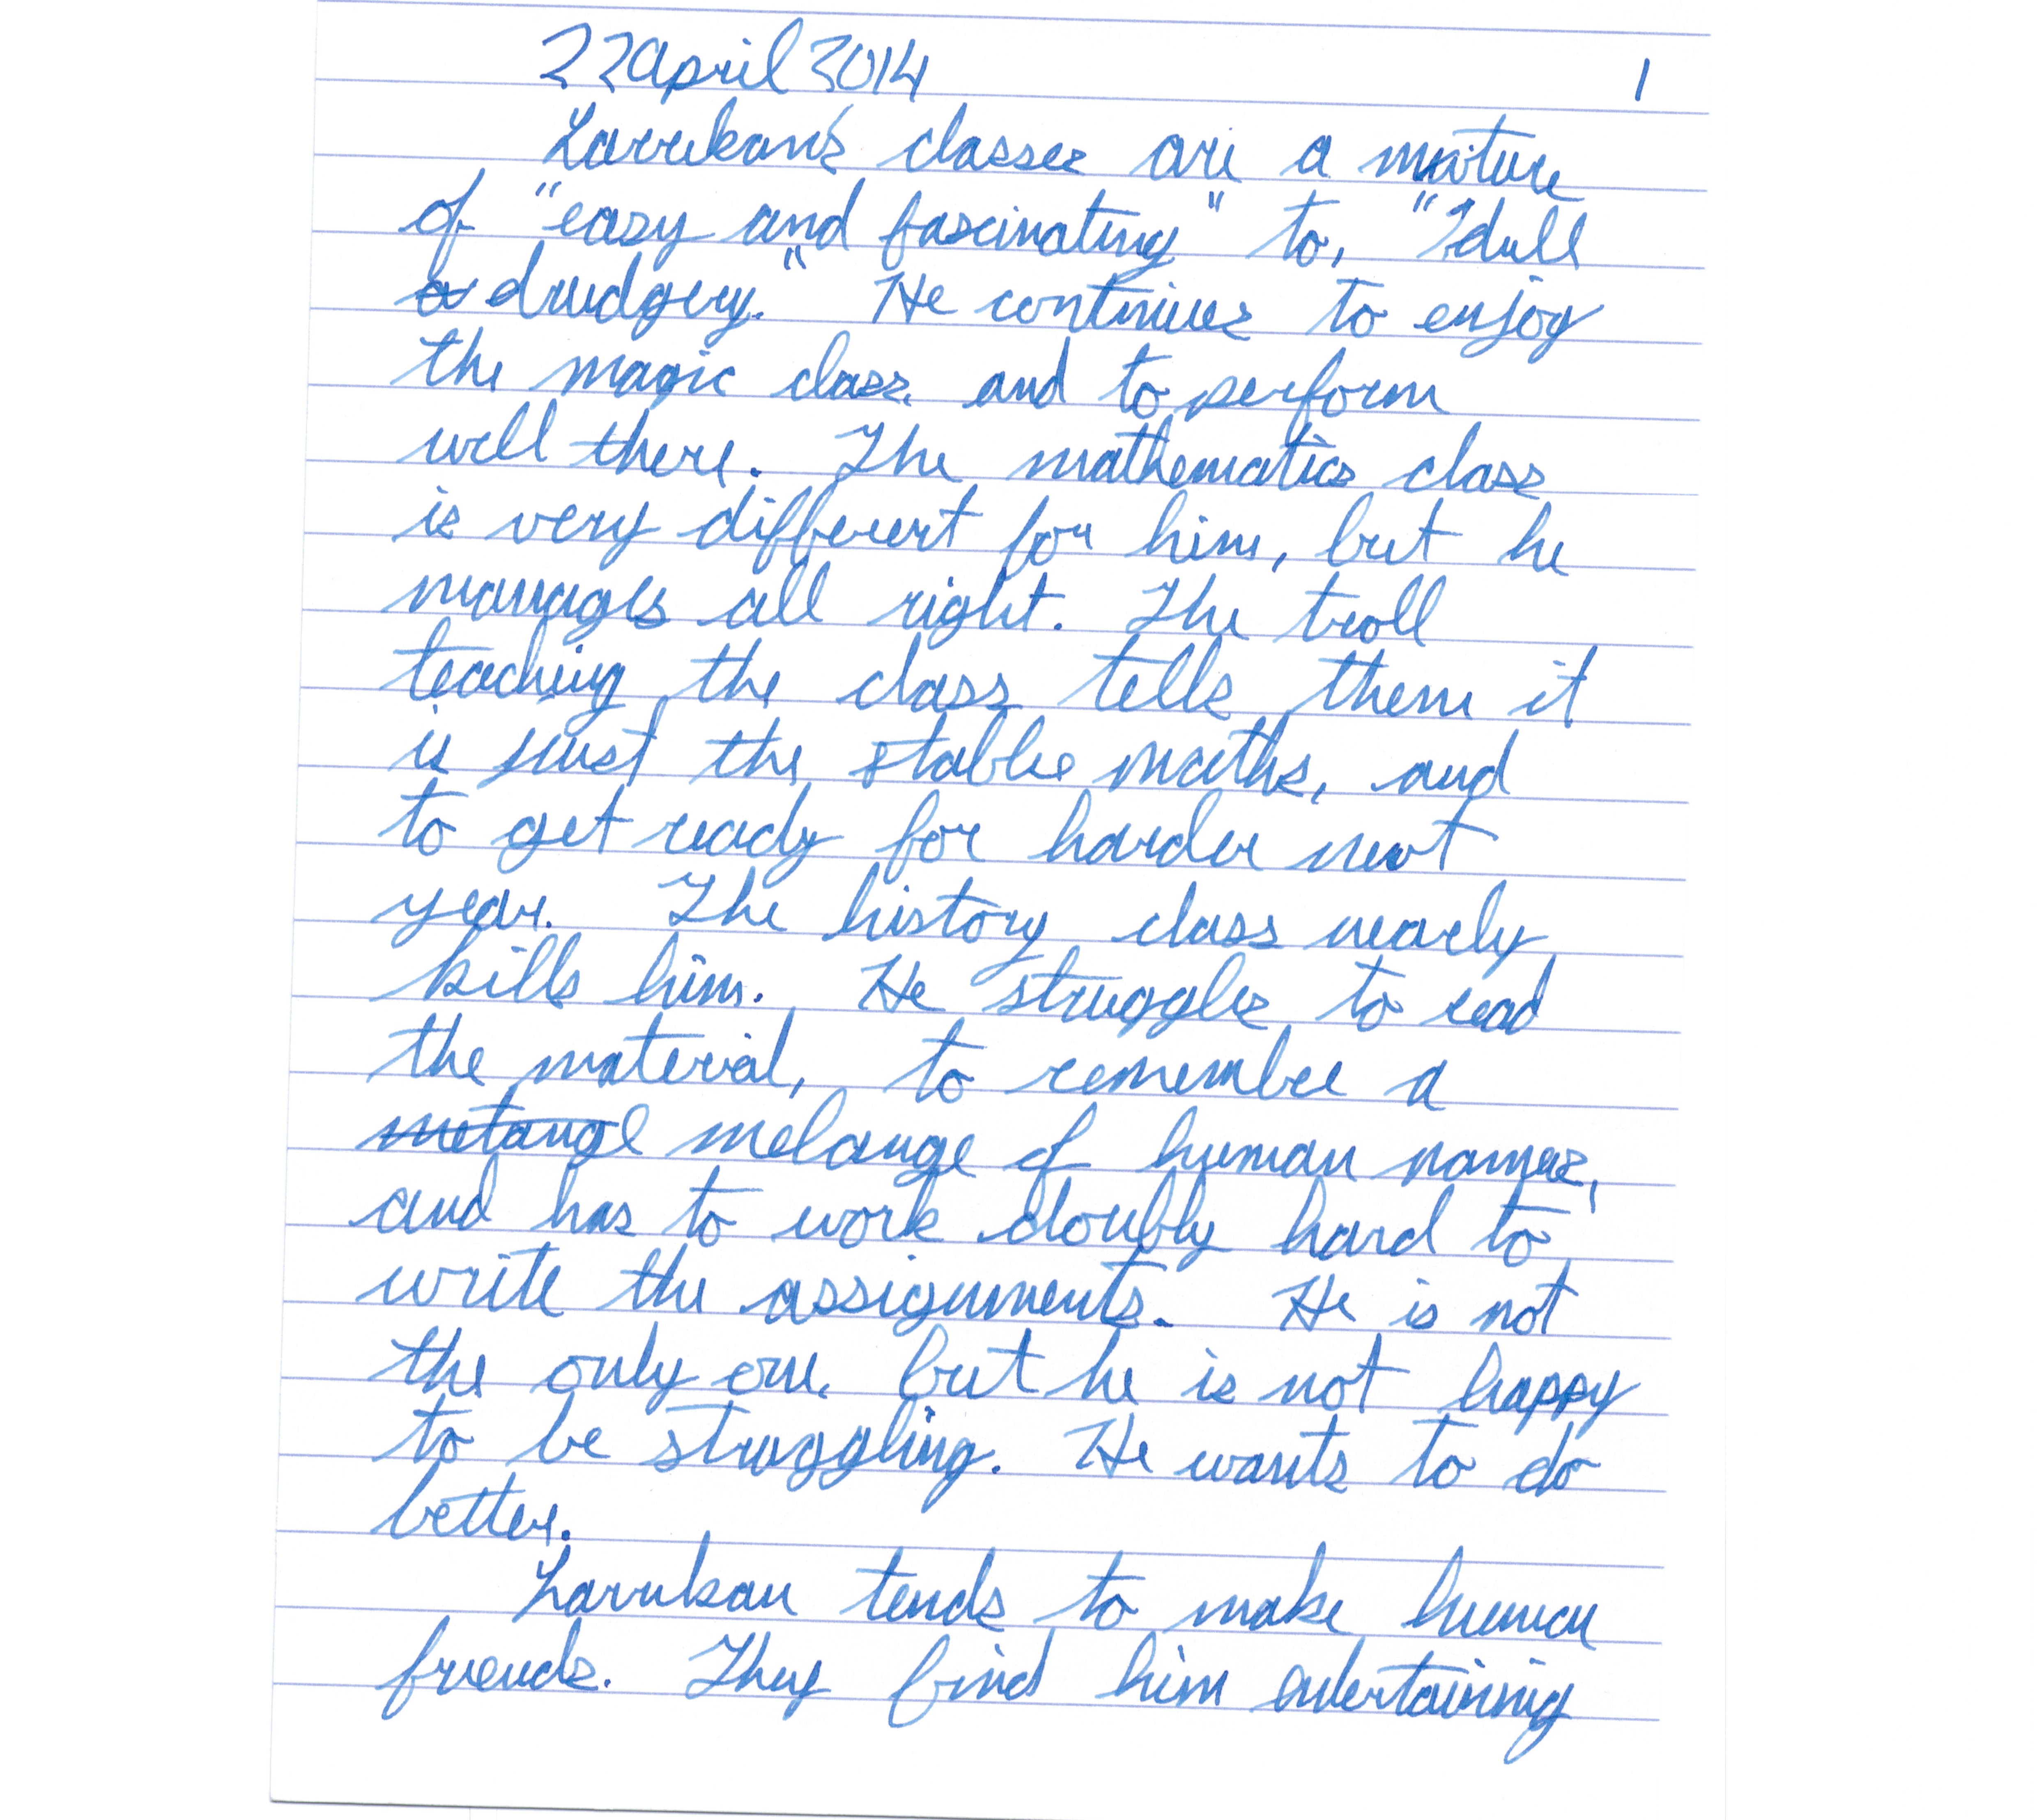 22 April 3014 1
Zarukan's classes are a mixture
of "easy and fascinating" to, "dull
drudgery." He continues to enjoy
the magic class and to perform
well there. The mathematics class
is very different for him, but he
manages all right. The troll
teaching the class tells them it
is just the stable maths, and
to get ready for harder next
year. The history class nearly
kills him. He struggles to read
the material, to remember a
melange of human names,
and has to work doubly hard to
write the assignments. He is not
the only one, but he is not happy
to be struggling. He wants to do
better.
Zarukan tends to make human
friends. They find him entertaining